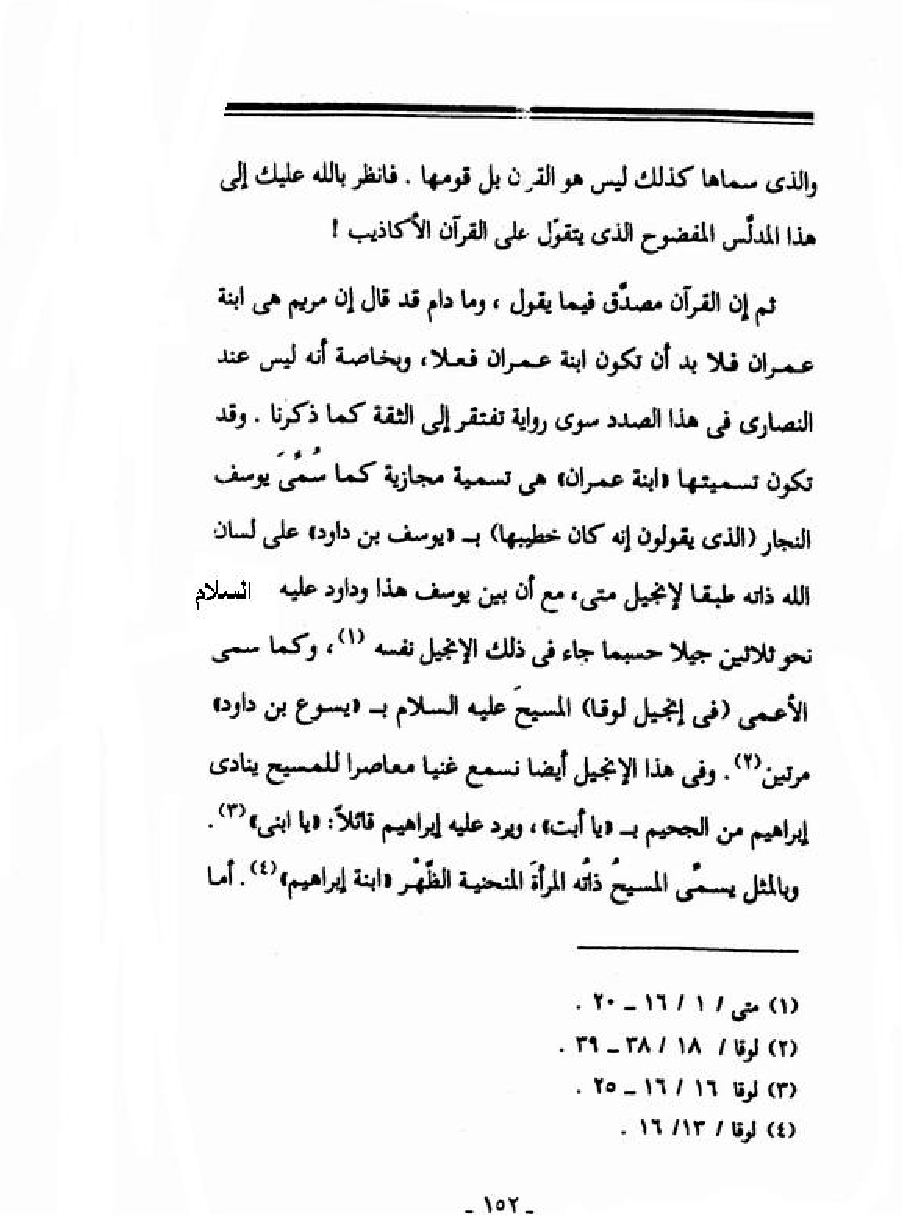 والذى سماها كذلك ليس هو القرن بل قومها . فانظر بالله عليك إلى
هذا المدلّس المفضوح الذى يتقوّل على القرآن الأكاذيب !
ثم إن القرآن مصدَّق فيما يقول ، وما دام قد قال إن مريم هى ابنة
عـمـران فـلا بد أن تكون ابنة عـمـران فـعـلا، وبخاصـة أنه ليس عند
النصارى فى هذا الصدد سوى رواية تفتقر إلى الثقة كما ذكرنا . وقد
تكون تسـميتـها «ابنة عمران» هى تسمية مجازية كما سُمَّىَ يوسف
النجار (الذى يقولون إنه كان خطيبها) بـ «يوسف بن داود» على لسان
الله ذاته طبقا لإنجيل متى، مع أن بين يوسف هذا وداود عليه السلام
نحو ثلاثين جيلا حسبما جاء فى ذلك الإنجيل نفسه (١) ، وكما سمى
الأعـمى (فى إنجيل لوقـا) المسيحَ عليه السـلام بـ «يسوع بن داود»
مرتين(٢). وفى هذا الإنجيل أيضا نسمع غنيا معاصرا للمسيح ينادى
إبراهيم من الجحيم بـ «يا أبت» ، ويرد عليه إبراهيم قائلاً: «يا ابنى»(٣).
وبالمثل يـسـمَّى المسيحُ ذاتُه المرأةَ المنحنيـة الظَّهْـر «ابنة إبراهيم»(٤). أمـا
(١) متى / ١ / ١٦ ـ ٢٠ .
(٢) لوقا / ١٨ / ٣٨ ـ ٣٩ .
(٣) لوقا ١٦ / ١٦ ـ ٢٥ .
(٤) لوقا / ١٣/ ١٦ .
ـ ١٥٢ ـ